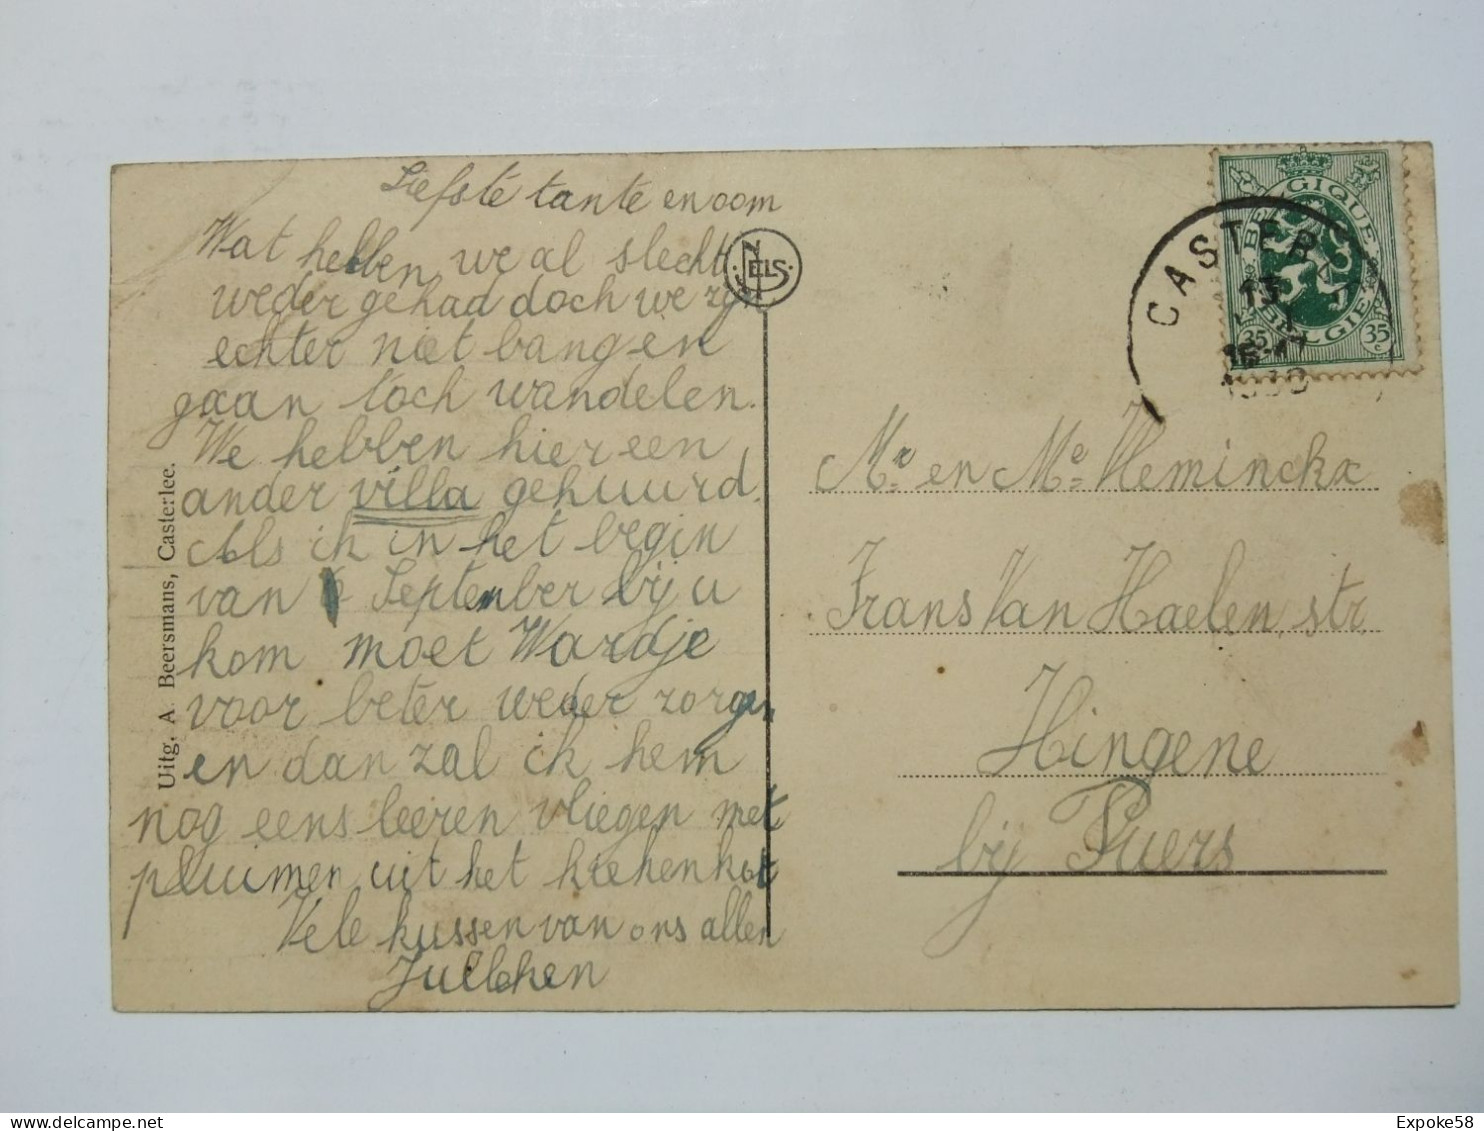 Liefste tante en oom
Wat hebben we al slecht
weder gehad doch we zijn
echter niet bang en
gaan toch wandelen.
We hebben hier een
ander villa gehuurd.
Als ik in het begin
van September bij u
kom moet Wardje
voor beter weder zorgen
en dan zal ik hem
nog eens leeren vliegen met
pluimen uit het kiekenkot
Vele kussen van ons allen
Uitg. A Beersmans, Casterlee.
NELS
BELGIQUE
BELGIE
35 c 35 c
CASTERL
13
16-17
1930
Mr. en Me. Vleminckx
Frans Van Haelen str.
Hingene
bij Puers
Expoke58